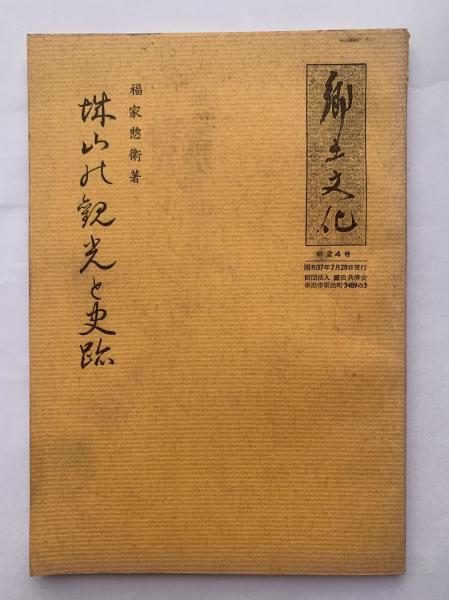 郷土文化
第24号
昭和37年7月28日発行
財団法人 鎌田共済会
坂出市坂出町3489の3
福家惣衛著
城山の観光と史跡